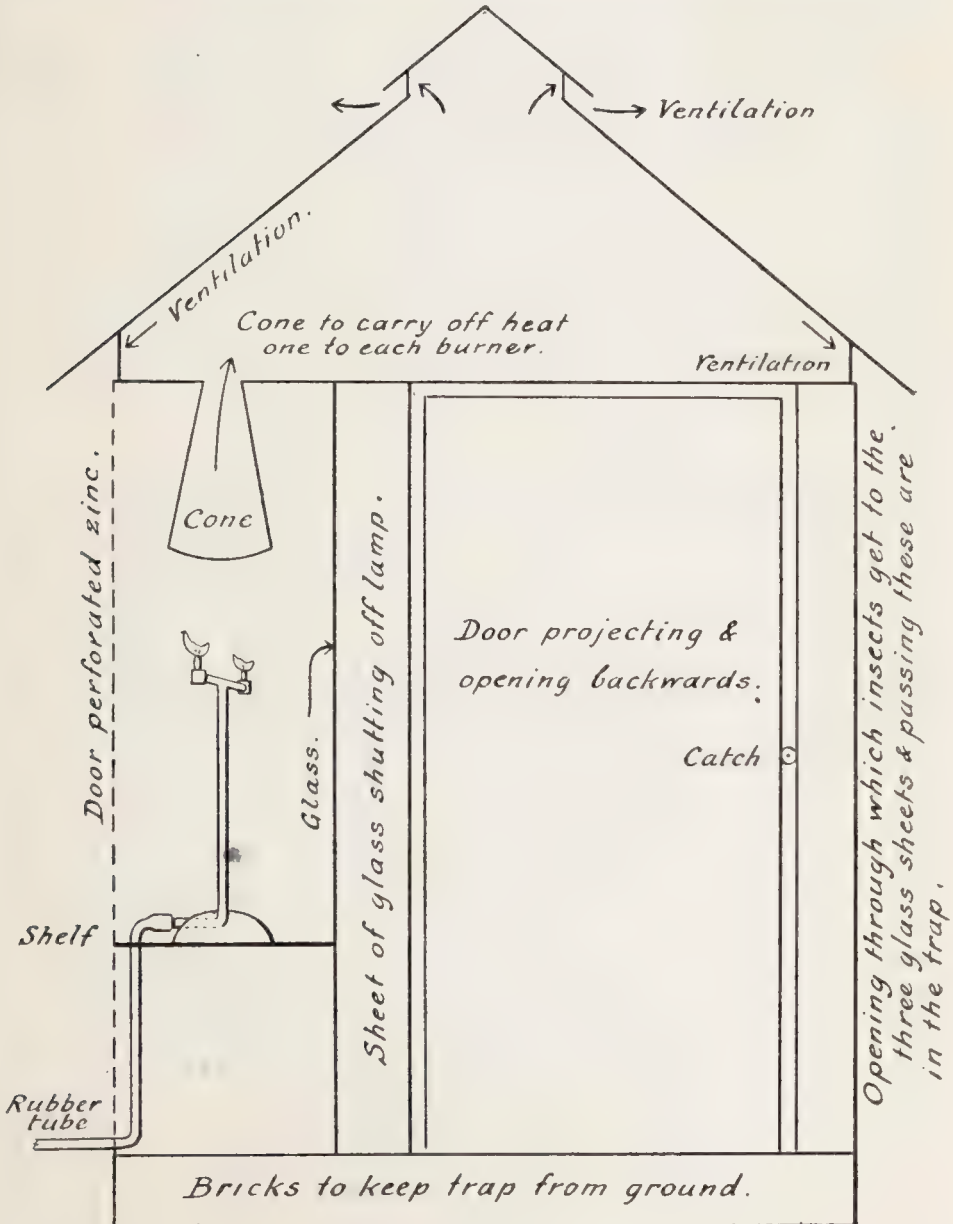 Ventilation
Ventilation.
Cone to carry off heat
one to each burner.
Ventilation
Cone
Door perforated zinc.
Glass.
Sheet of glass shutting off lamp.
Door projecting &
opening backwards.
Catch
Opening through which insects get to the
three glass sheets & passing these are
in the trap.
Shelf
Rubber
tube
Bricks to keep trap from ground.